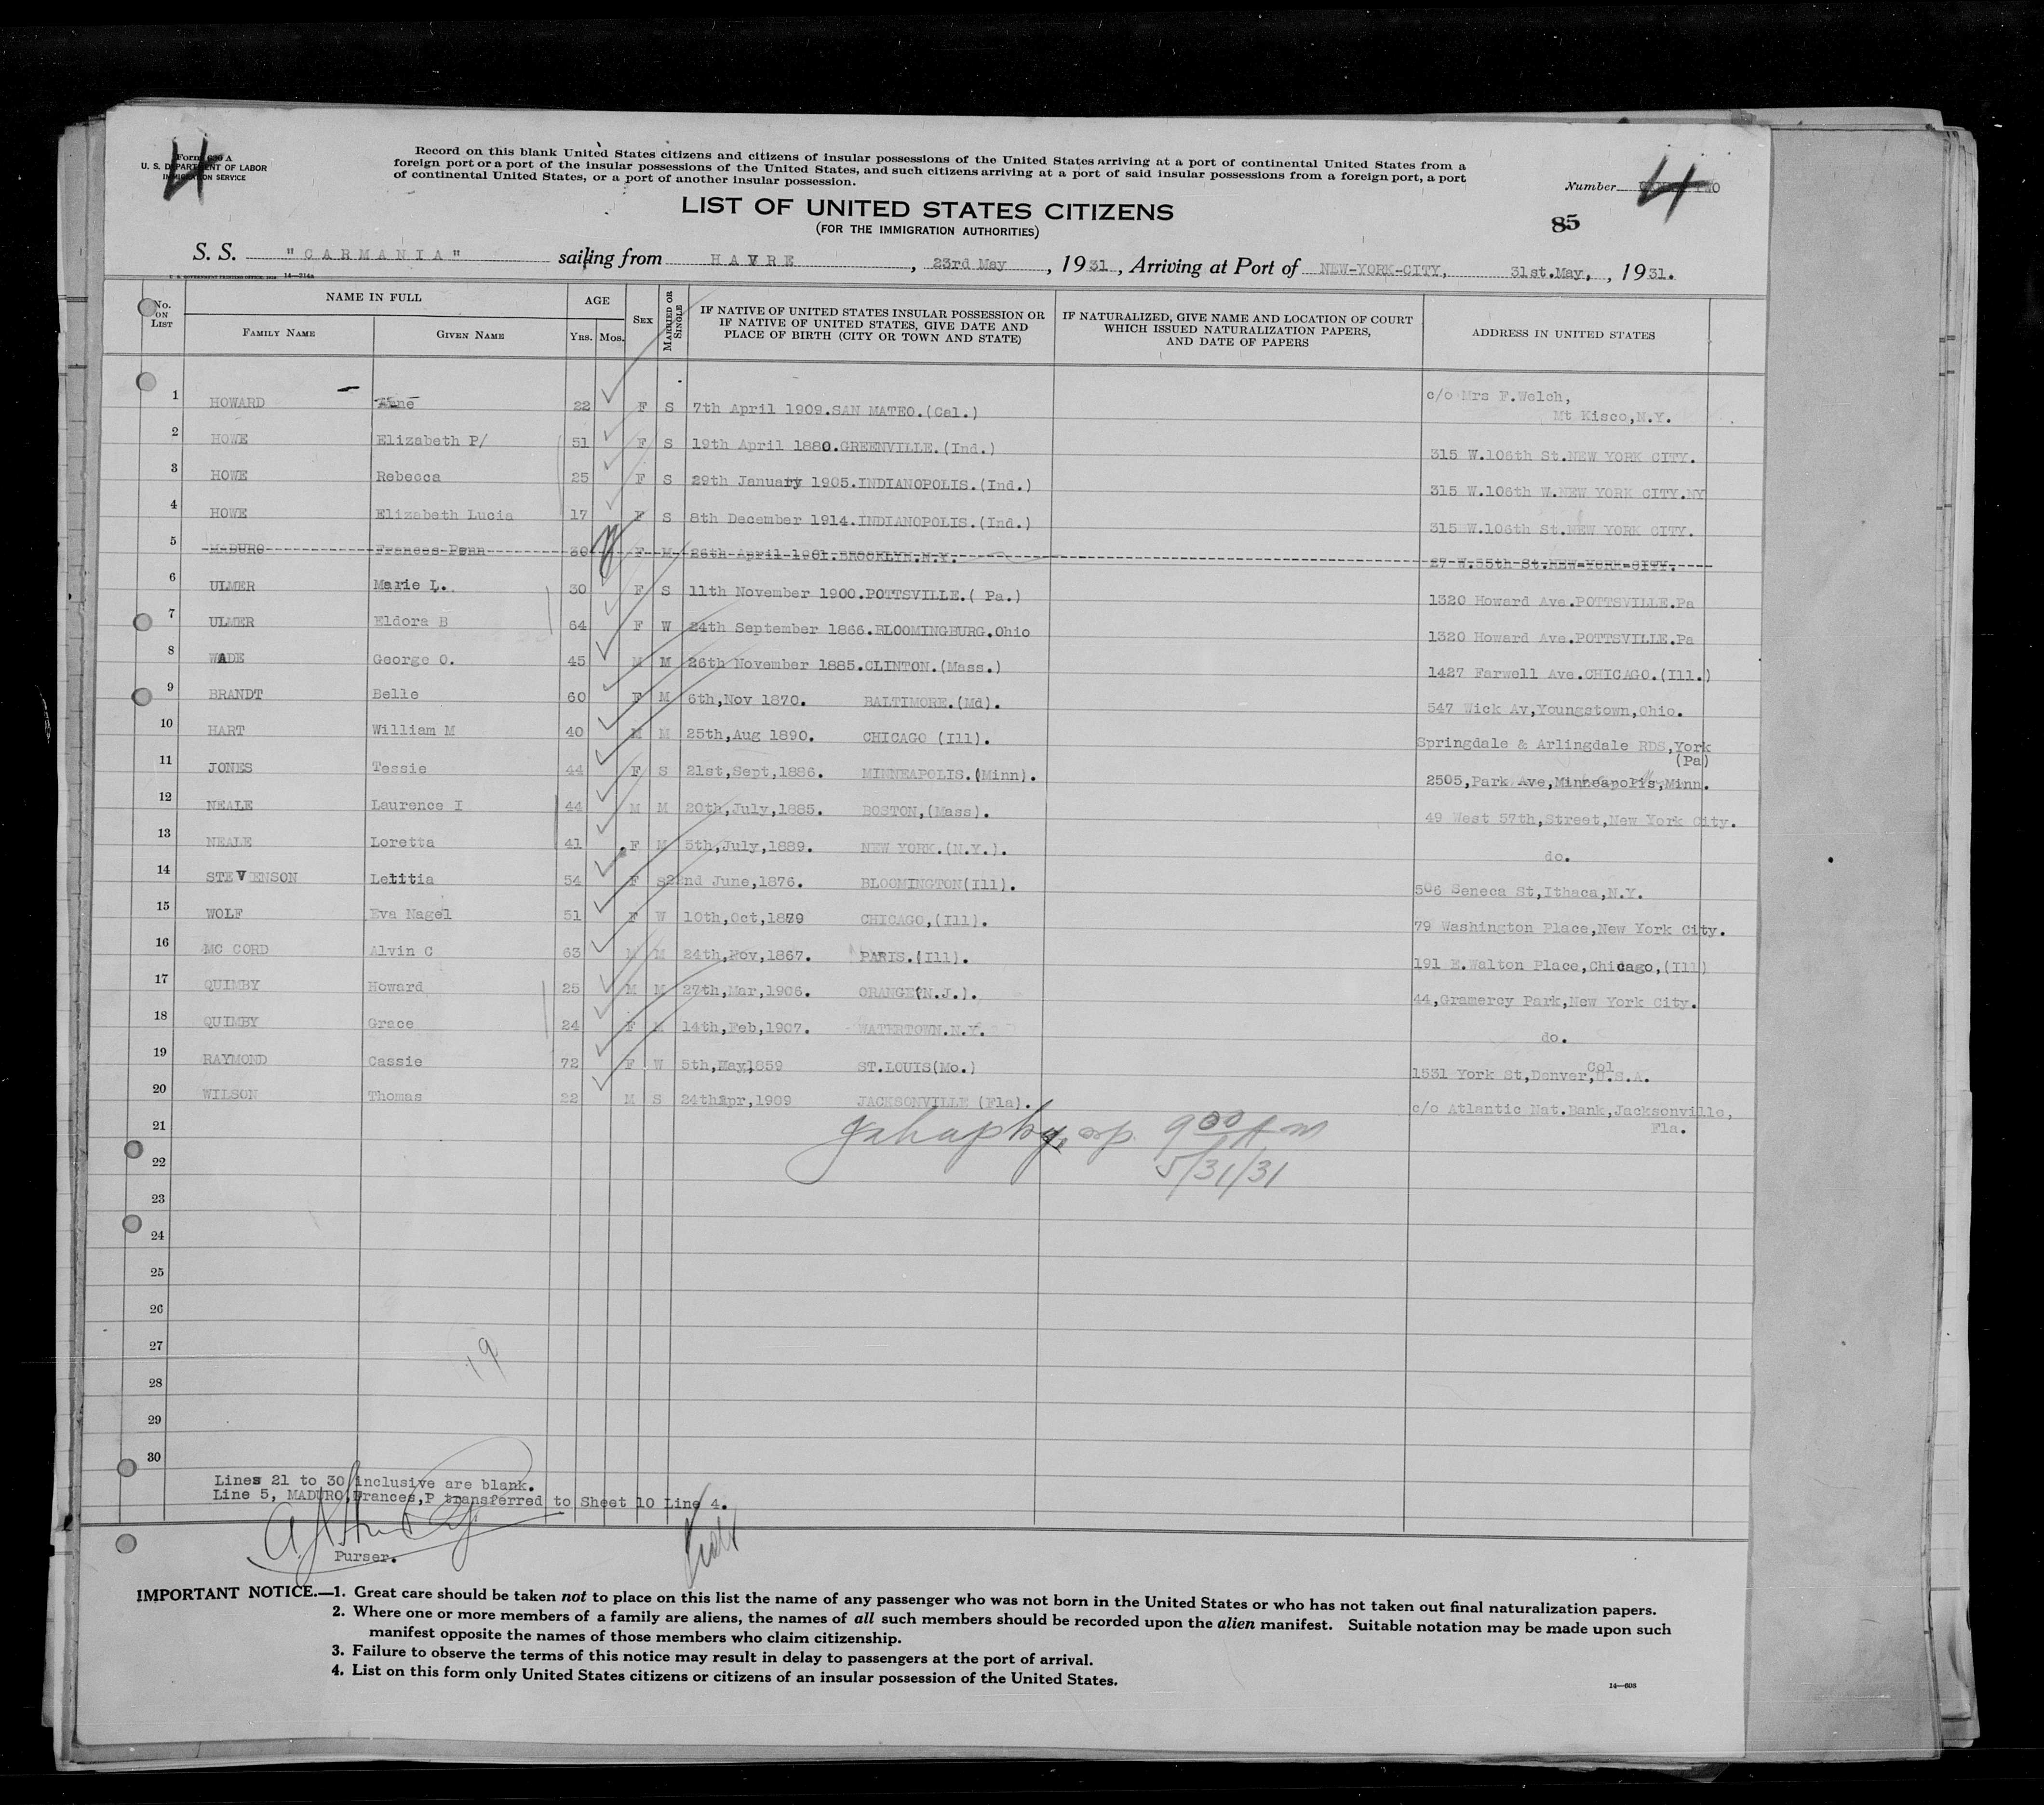 Form 630 A
U. S. DEPARTMENT OF LABOR
IMMIGRATION SERVICE
4
Record on this blank United States citizens and citizens of insular possessions of the United States arriving at a port of continental United States from a
foreign port or a port of the insular possessions of the United States, and such citizens arriving at a port of said insular possessions from a foreign port, a port
of continental United States, or a port of another insular possession.
Number 4
LIST OF UNITED STATES CITIZENS
(FOR THE IMMIGRATION AUTHORITIES)
85
S. S. "CARMANIA" sailing from HAVRE, 23rd May, 1931, Arriving at Port of NEW-YORK-CITY, 31st.May, , 1931.
U. S. GOVERNMENT PRINTING OFFICE 14-314a
No. ON LIST
NAME IN FULL
FAMILY NAME GIVEN NAME
AGE
YRS. MOS.
SEX
MARRIED OR SINGLE
IF NATIVE OF UNITED STATES INSULAR POSSESSION OR
IF NATIVE OF UNITED STATES, GIVE DATE AND
PLACE OF BIRTH (CITY OR TOWN AND STATE)
IF NATURALIZED, GIVE NAME AND LOCATION OF COURT
WHICH ISSUED NATURALIZATION PAPERS,
AND DATE OF PAPERS
ADDRESS IN UNITED STATES
1 HOWARD Anne 22 F S 7th April 1909.SAN MATEO.(Cal.) c/o Mrs F.Welch,
Mt Kisco,N.Y.
2 HOWE Elizabeth P/ 51 F S 19th April 1880.GREENVILLE.(Ind.) 315 W.106th St.NEW YORK CITY.
3 HOWE Rebecca 25 F S 29th January 1905.INDIANOPOLIS.(Ind.) 315 W.106th W.NEW YORK CITY.NY
4 HOWE Elizabeth Lucia 17 F S 8th December 1914.INDIANOPOLIS.(Ind.) 315 W.106th St.NEW YORK CITY.
5 MADURO Frances Penn 30 F M 26th April 1901.BROOKLYN.N.Y. 27 W.55th St.NEW-YORK-CITY.
6 ULMER Marie L. 30 F S 11th November 1900.POTTSVILLE.( Pa.) 1320 Howard Ave.POTTSVILLE.Pa
7 ULMER Eldora B 64 F W 24th September 1866.BLOOMINGBURG.Ohio 1320 Howard Ave.POTTSVILLE.Pa
8 WADE George O. 45 M M 26th November 1885.CLINTON.(Mass.) 1427 Farwell Ave.CHICAGO.(Ill.)
9 BRANDT Belle 60 F M 6th,Nov 1870. BALTIMORE.(Md). 547 Wick Av,Youngstown,Ohio.
10 HART William M 40 M M 25th,Aug 1890. CHICAGO (Ill). Springdale & Arlingdale RDS,York
(Pa)
11 JONES Tessie 44 F S 21st,Sept,1886. MINNEAPOLIS.(Minn). 2505,Park Ave,Minneapolis,Minn.
12 NEALE Laurence I 44 M M 20th,July,1885. BOSTON,(Mass). 49 West 57th,Street,New York City.
13 NEALE Loretta 41 F M 5th,July,1889. NEW YORK.(N.Y.). do.
14 STEVENSON Letitia 54 F S 22nd June,1876. BLOOMINGTON(Ill). 506 Seneca St,Ithaca,N.Y.
15 WOLF Eva Nagel 51 F W 10th,Oct,1879 CHICAGO,(Ill). 79 Washington Place,New York City.
16 MC CORD Alvin C 63 M M 24th,Nov,1867. PARIS.(Ill). 191 E.Walton Place,Chicago,(Ill)
17 QUIMBY Howard 25 M M 27th,Mar,1906. ORANGE(N.J.). 44,Gramercy Park,New York City.
18 QUIMBY Grace 24 F M 14th,Feb,1907. WATERTOWN.N.Y. do.
19 RAYMOND Cassie 72 F W 5th,May,1859 ST.LOUIS(Mo.) 1531 York St,Denver,Col U.S.A.
20 WILSON Thomas 22 M S 24thApr,1909 JACKSONVILLE (Fla). c/o Atlantic Nat.Bank,Jacksonville,
Fla.
21
9 00 A m
22
5/31/31
23
24
25
26
27
19
28
29
30
Lines 21 to 30 inclusive are blank.
Line 5, MADURO,Frances,P transferred to Sheet 10 Line 4.
Purser.
IMPORTANT NOTICE.—1. Great care should be taken not to place on this list the name of any passenger who was not born in the United States or who has not taken out final naturalization papers.
2. Where one or more members of a family are aliens, the names of all such members should be recorded upon the alien manifest. Suitable notation may be made upon such
manifest opposite the names of those members who claim citizenship.
3. Failure to observe the terms of this notice may result in delay to passengers at the port of arrival.
4. List on this form only United States citizens or citizens of an insular possession of the United States.
14—608